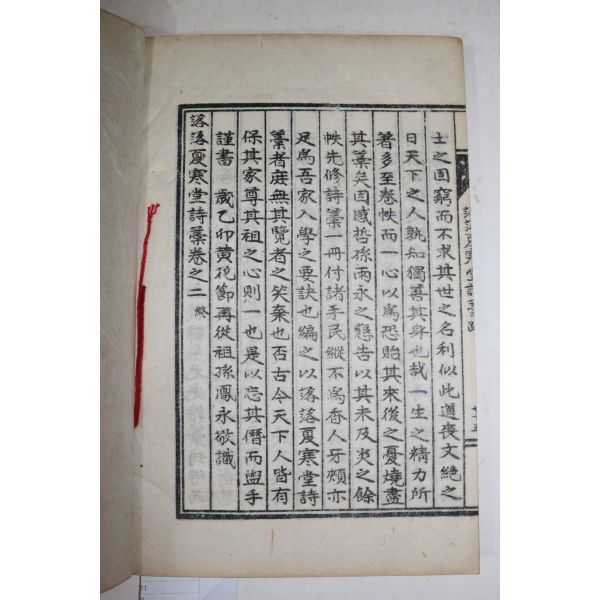 士之困窮而不求其世之名利似此道喪文絶之
日天下之人孰知獨善其身也哉一生之精力所
著多至卷帙而一心以爲恐貽其來後之憂燒盡
其藁矣因感哲孫雨永之懇告以其未及炎之餘
帙先修詩藁一冊付諸手民縱不爲香人牙頰亦
足爲吾家入學之要訣也編之以落落夏寒堂詩
藁者庭無其覽者之笑棄也否古今天下人皆有
保其家尊其祖之心則一也是以忘其僭而盥手
謹書 歲乙卯黃花節再從祖孫鳳永敬識
落落夏寒堂詩藁卷之二 終